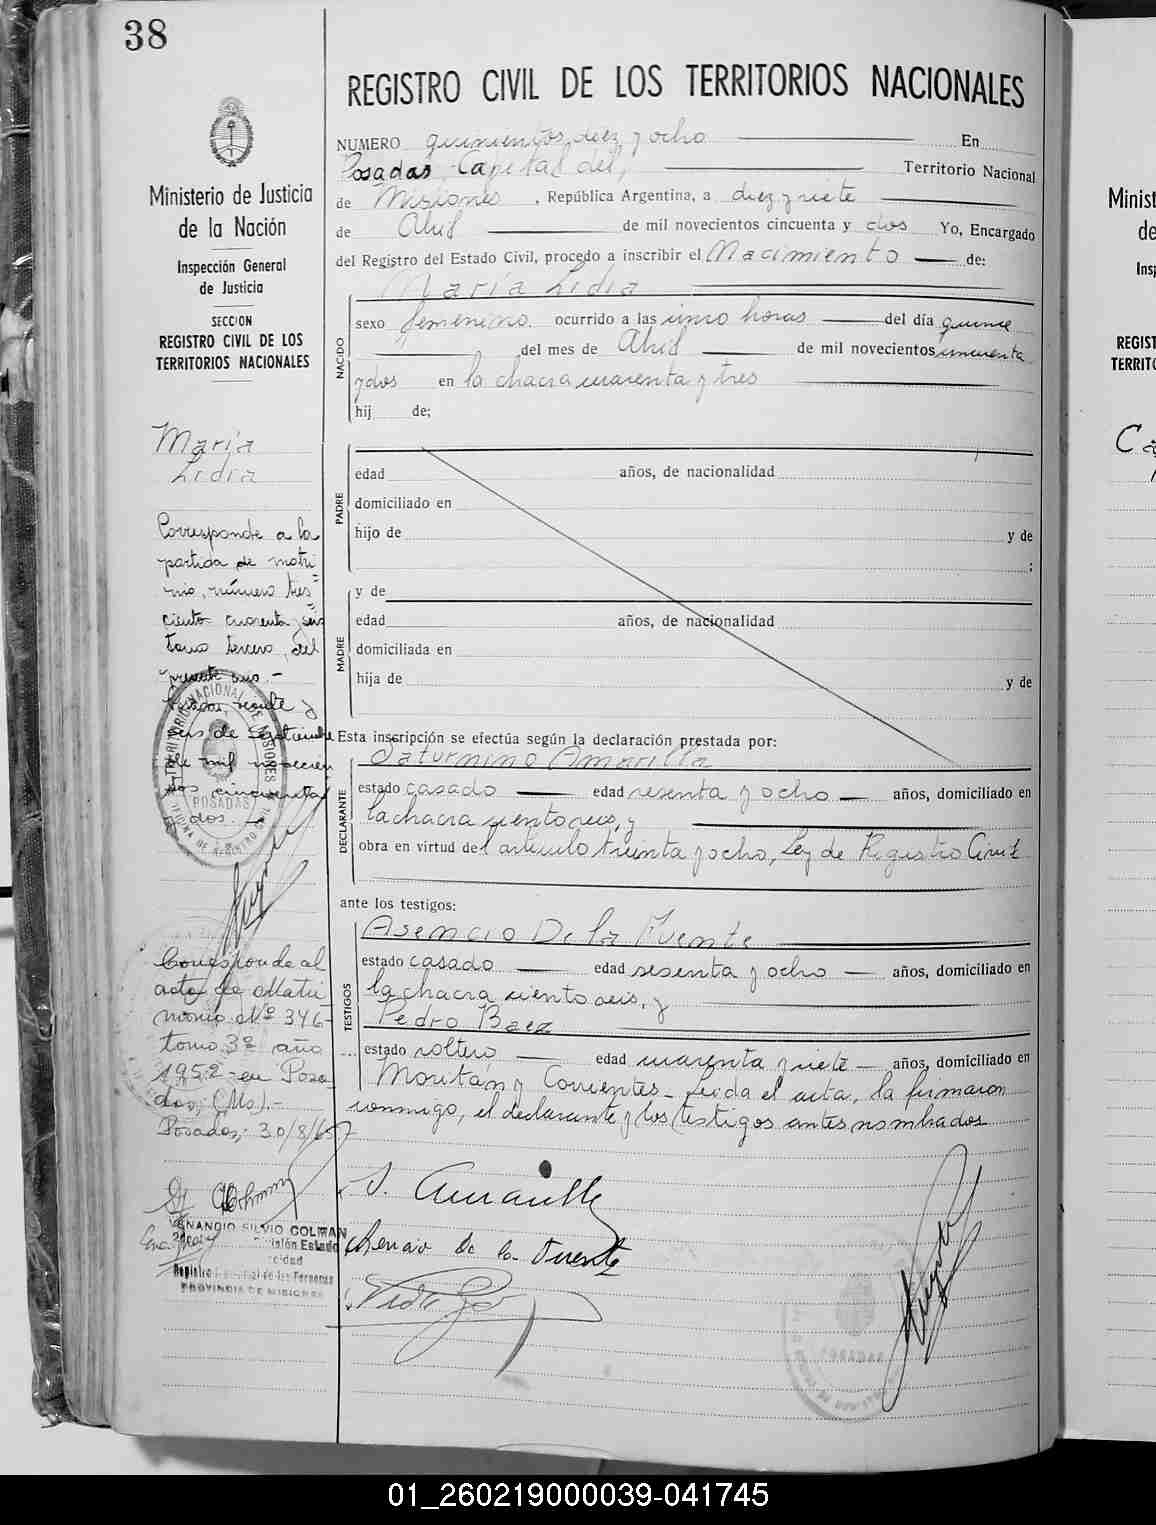 38
REGISTRO CIVIL DE LOS TERRITORIOS NACIONALES
Ministerio de Justicia
de la Nación
Inspección General
de Justicia
SECCION
REGISTRO CIVIL DE LOS
TERRITORIOS NACIONALES
NUMERO quinientos diez y ocho En
Posadas, Capital del, Territorio Nacional
de Misiones, República Argentina, a diez y siete
de Abril de mil novecientos cincuenta y dos Yo, Encargado
del Registro del Estado Civil, procedo a inscribir el Nacimiento de:
María Lidia
NACIDO
sexo femenino. ocurrido a las cinco horas del día quince
del mes de Abril de mil novecientos cincuenta
y dos en la chacra cuarenta y tres
hij de;
PADRE
edad años, de nacionalidad
domiciliado en
hijo de y de
;
MADRE
y de
edad años, de nacionalidad
domiciliada en
hija de y de
Esta inscripción se efectúa según la declaración prestada por:
DECLARANTE
Saturnino Amarilla
estado casado edad sesenta y ocho años, domiciliado en
la chacra ciento seis, y
obra en virtud del artículo treinta y ocho, Ley de Registro Civil
ante los testigos:
TESTIGOS
Asencio De la Fuente
estado casado edad sesenta y ocho años, domiciliado en
la chacra ciento seis, y
Pedro Baez
estado soltero edad cuarenta y siete años, domiciliado en
Moritán y Corrientes - Leída el acta, la firmaron
conmigo, el declarante y los testigos antes nombrados
S. Amarilla
Asencio De la Fuente
María
Lidia
Corresponde a la
partida de matri=
nio, número tres=
ciento cuarenta y seis
tomo tercero, del
presente año.-
Posadas, veinte y
seis de Septiembre
de mil novecien
tos cincuenta
y dos.-
TERRITORIO NACIONAL DE MISIONES
POSADAS
Corresponde al
acta de Matri
monio Nº 346-
tomo 3º año
1952 - en Posa
das, (Ms).-
Posadas, 30/8/65
VENANCIO SILVIO COLMAN
Registro Provincial de las Personas
PROVINCIA DE MISIONES
POSADAS
Minist
de
Ins
REGIST
TERRITO
Ca
01_260219000039-041745